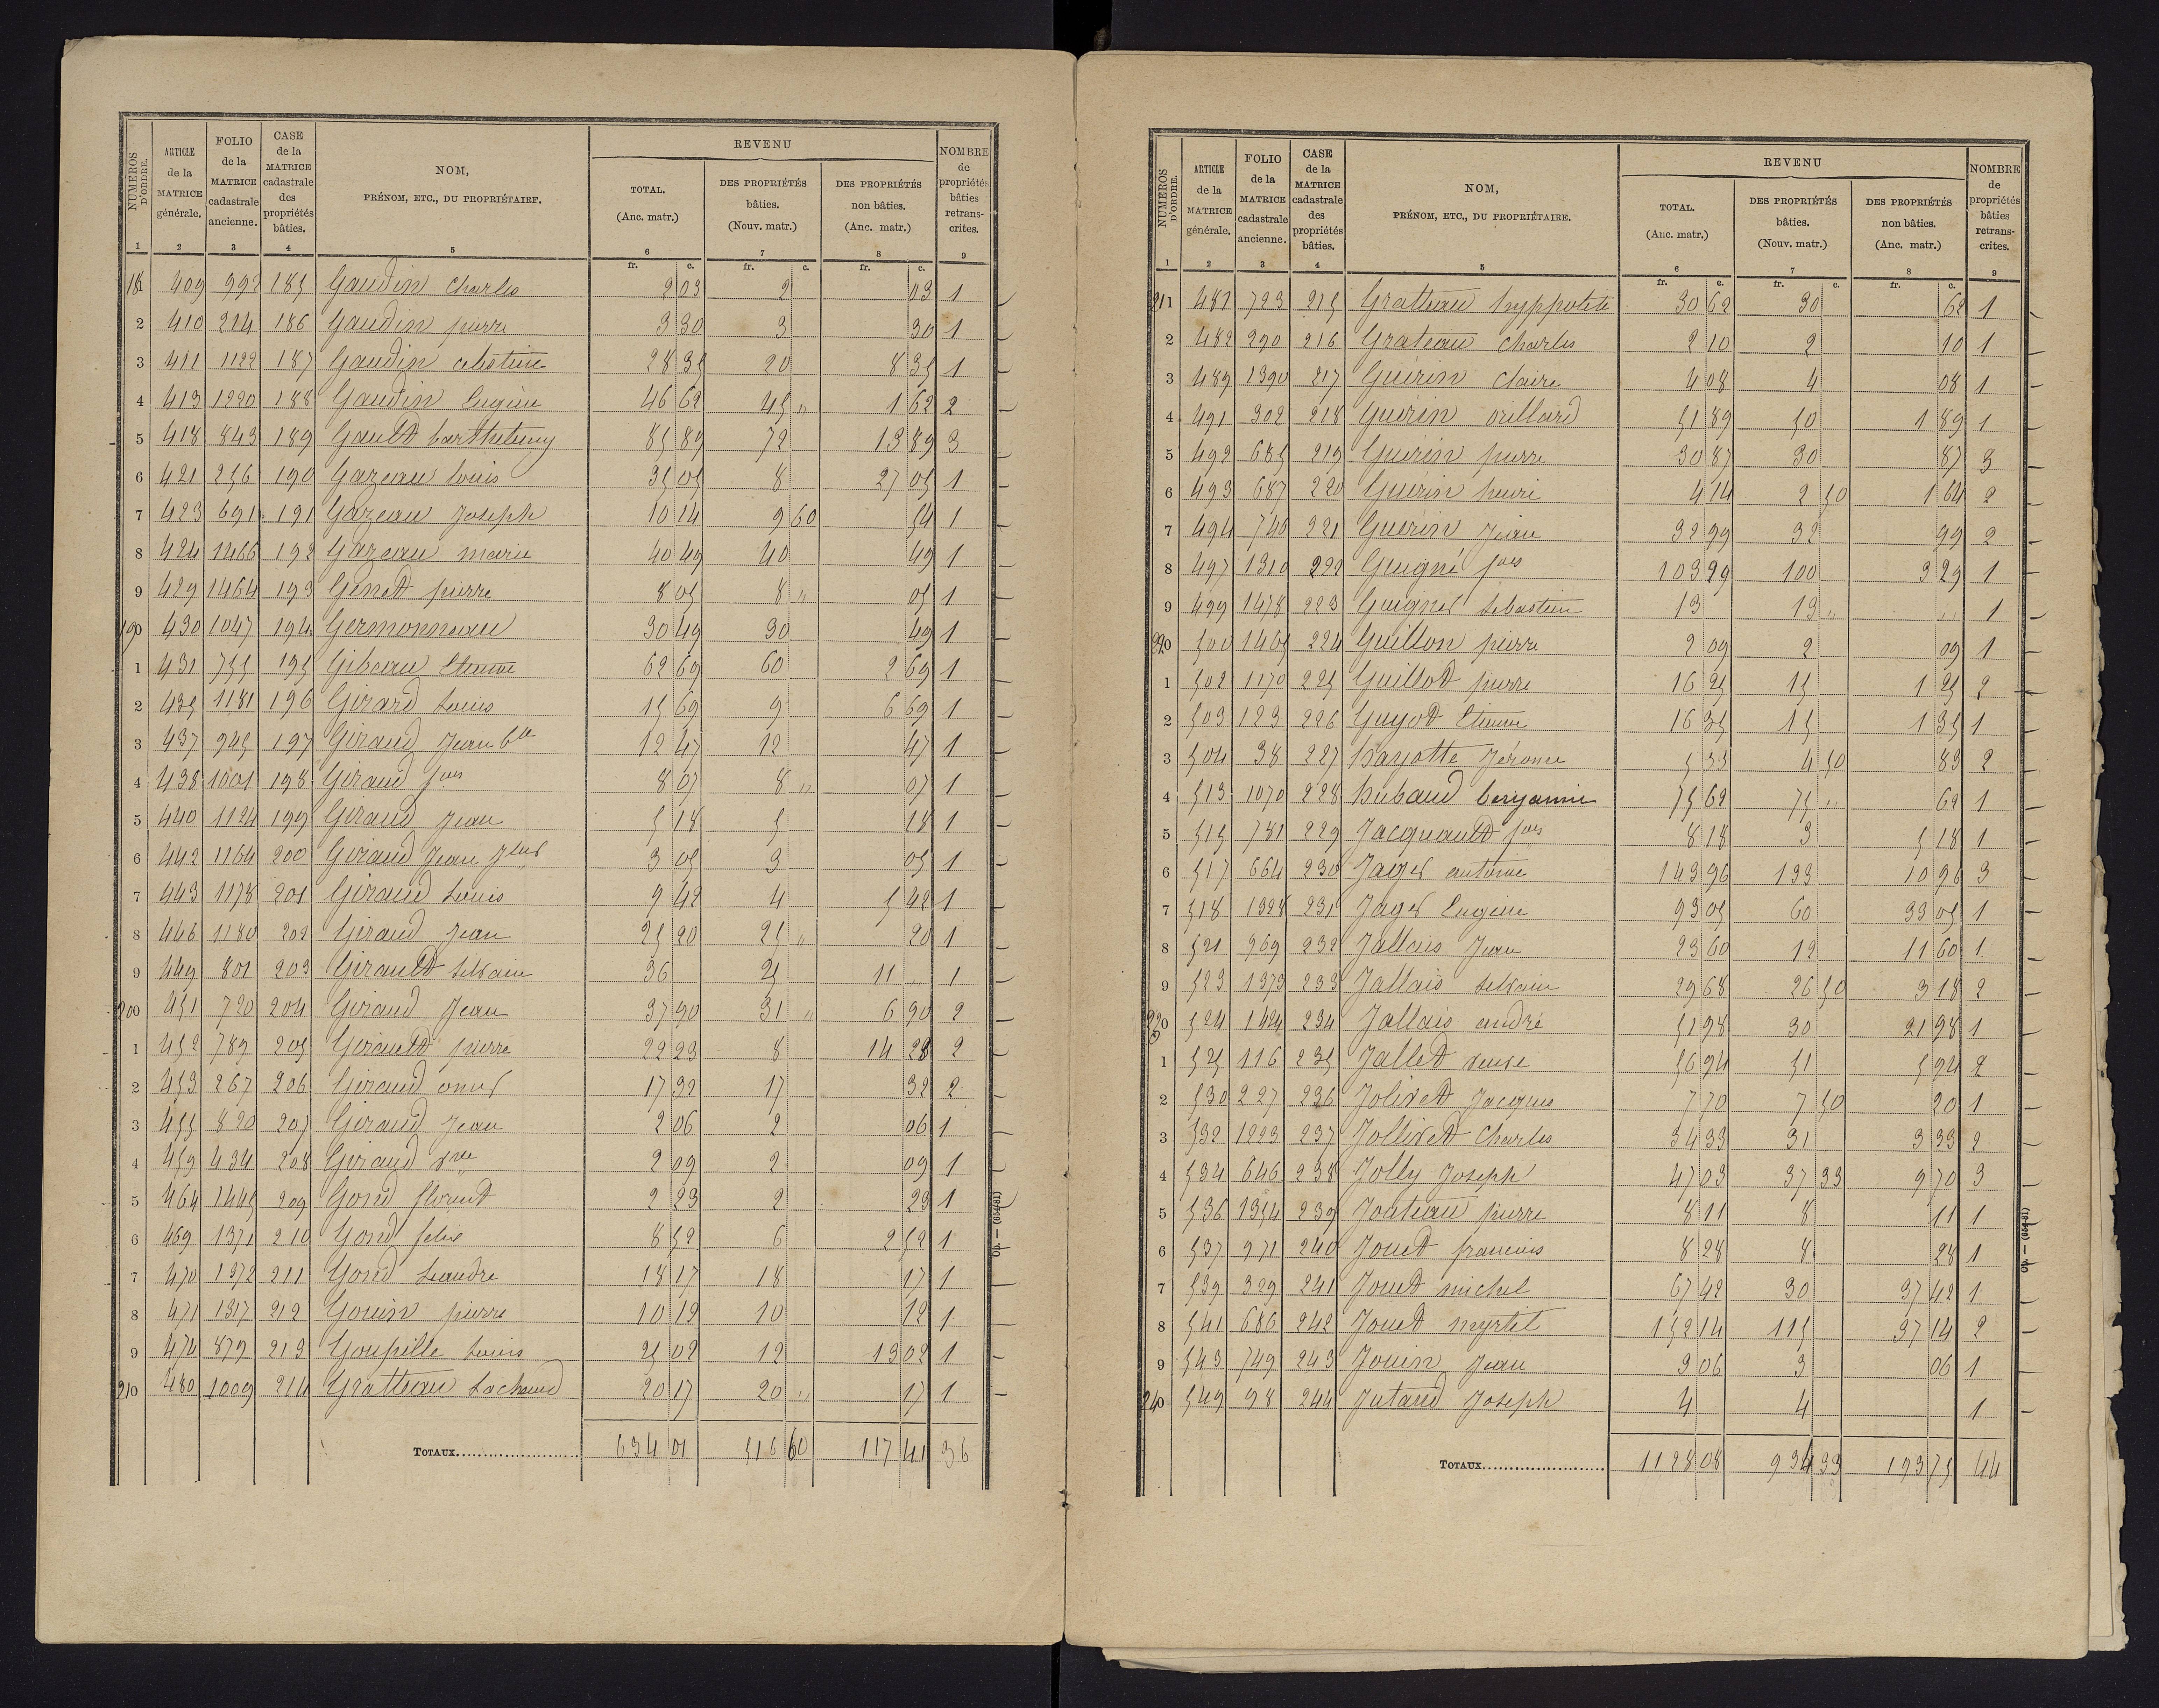 NUMÉROS D'ORDRE. ARTICLE de la MATRICE générale. FOLIO de la MATRICE cadastrale ancienne. CASE de la MATRICE cadastrale des propriétés bâties. NOM, PRÉNOM, ETC., DU PROPRIÉTAIRE. REVENU TOTAL. (Anc. matr.) DES PROPRIÉTÉS bâties. (Nouv. matr.) DES PROPRIÉTÉS non bâties. (Anc. matr.) NOMBRE de propriétés bâties retranscrites.
1 2 3 4 5 6 7 8 9
fr. c. fr. c. fr. c.
181 409 992 185 Gaudin Charles 2 03 2 03 1
2 410 214 186 Gaudin pierre 3 30 3 30 1
3 411 1122 187 Gaudin celestine 28 35 20 8 35 1
4 413 1220 188 Gaudin Eugène 46 62 45 " 1 62 2
5 418 843 189 Gault barthelemy 85 89 72 13 89 3
6 421 256 190 Gazeau louis 35 05 8 27 05 1
7 423 691 191 Gazeau Joseph 10 14 9 60 54 1
8 424 1466 192 Gazeau marie 40 49 40 49 1
9 429 1464 193 Genet pierre 8 05 8 " 05 1
190 430 1047 194 Germonneau 30 49 30 49 1
1 431 755 195 Gibeau Etienne 62 69 60 2 69 1
2 435 1181 196 Girard Louis 15 69 9 6 69 1
3 437 945 197 Giraud Jean Bte 12 47 12 47 1
4 438 1001 198 Giraud fois 8 07 8 " 07 1
5 440 1124 199 Giraud Jean 5 18 5 18 1
6 442 1164 200 Giraud Jean 3 05 3 05 1
7 443 1178 201 Giraud Louis 9 42 4 5 42 1
8 446 1180 202 Giraud Jean 25 20 25 " 20 1
9 449 801 203 Girault Silvain 36 25 11 " 1
200 451 720 204 Giraud Jean 37 90 31 " 6 90 2
1 452 789 205 Girault pierre 22 23 8 14 23 2
2 453 267 206 Giraud omer 17 32 17 32 2
3 455 820 207 Giraud Jean 2 06 2 06 1
4 459 434 208 Giraud vve 2 09 2 09 1
5 464 1445 209 Gond florent 2 23 2 23 1
6 469 1371 210 Gond felix 8 52 6 2 52 1
7 470 1372 211 Gond Leandre 18 17 18 17 1
8 471 1317 212 Gouin pierre 10 12 10 12 1
9 474 879 213 Goupille Louis 25 02 12 13 02 1
210 480 1009 214 Gratteau Lachaud 20 17 20 " 17 1
TOTAUX 634 01 516 60 117 41 36
Op. — (654-81)
NUMÉROS D'ORDRE. ARTICLE de la MATRICE générale. FOLIO de la MATRICE cadastrale ancienne. CASE de la MATRICE cadastrale des propriétés bâties. NOM, PRÉNOM, ETC., DU PROPRIÉTAIRE. REVENU TOTAL. (Anc. matr.) DES PROPRIÉTÉS bâties. (Nouv. matr.) DES PROPRIÉTÉS non bâties. (Anc. matr.) NOMBRE de propriétés bâties retranscrites.
1 2 3 4 5 6 7 8 9
fr. c. fr. c. fr. c.
211 481 723 215 Gratteau hyppolite 30 62 30 62 1
2 482 290 216 Grateau Charles 2 10 2 10 1
3 489 1390 217 Guérin Claire 4 08 4 08 1
4 491 302 218 Guérin 51 89 50 1 89 1
5 492 685 219 Guérin pierre 30 87 30 87 3
6 493 687 220 Guérin henri 4 14 2 50 1 64 2
7 494 746 221 Guérin Jean 32 99 32 99 2
8 497 1310 222 Guigné fois 103 29 100 3 29 1
9 499 1478 223 Guigner Sebastien 13 13 " " 1
220 500 1465 224 Guillon pierre 2 09 2 09 1
1 502 1170 225 Guillot pierre 16 25 15 1 25 2
2 503 123 226 Guyot Etienne 16 35 15 1 35 1
3 504 38 227 hayotte Jérome 5 33 4 50 83 2
4 513 1070 228 hubaud benjamin 75 62 75 " 62 1
5 515 781 229 Jacquault fois 8 18 3 5 18 1
6 517 664 230 Jager antoine 143 96 133 10 96 3
7 518 1328 231 Jager Eugène 93 05 60 33 05 1
8 521 969 232 Jallais Jean 23 60 12 11 60 1
9 523 1373 233 Jallais Silvain 29 68 26 50 3 18 2
230 524 1424 234 Jallais andré 51 98 30 21 98 1
1 525 116 235 Jallet veuve 56 94 51 5 94 2
2 530 227 236 Jolivet Jacques 7 70 7 50 20 1
3 532 1223 237 Jollivet Charles 34 33 31 3 33 2
4 534 646 238 Jolly Joseph 47 03 37 33 9 70 3
5 536 1354 239 Jouteau pierre 8 11 8 11 1
6 537 971 240 Jouet francois 8 28 8 28 1
7 539 329 241 Jouet michel 67 42 30 37 42 1
8 541 686 242 Jouet myrtil 152 14 115 37 14 2
9 543 749 243 Jouin Jean 3 06 3 06 1
240 549 98 244 Jutard Joseph 4 4 1
TOTAUX 1128 08 934 33 193 75 44
Op. — (654-81)